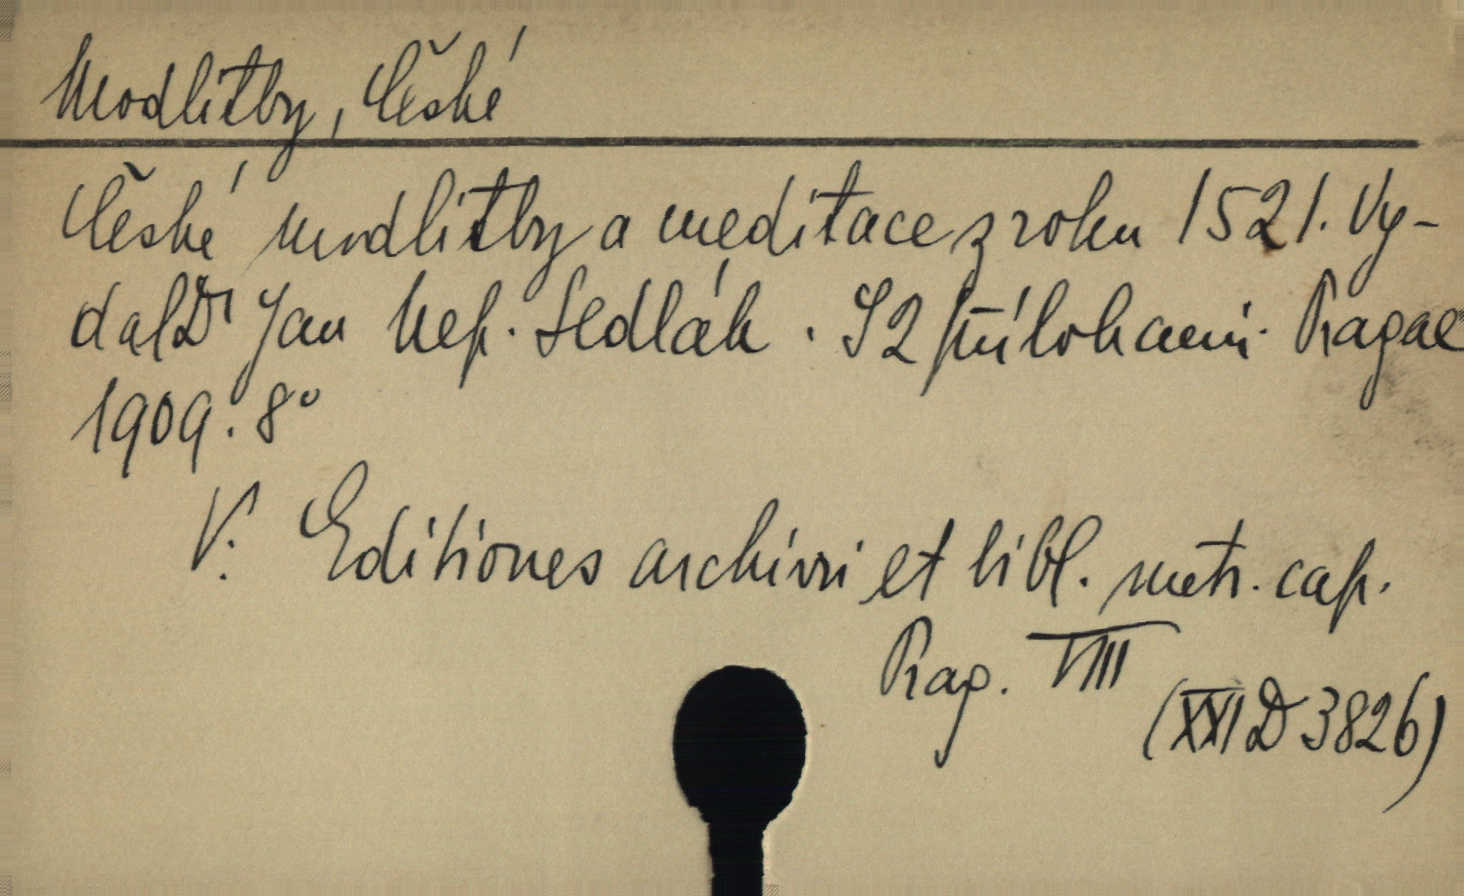 Modlitby, České
České modlitby a meditace z roku 1521. Vy-
dal Dr Jan Nep. Sedlák. S 2 přílohami. Pragae
1909. 8°
V. Editiones archivii et bibl. metr. cap.
Prag. VIII
(XXI D 3826)